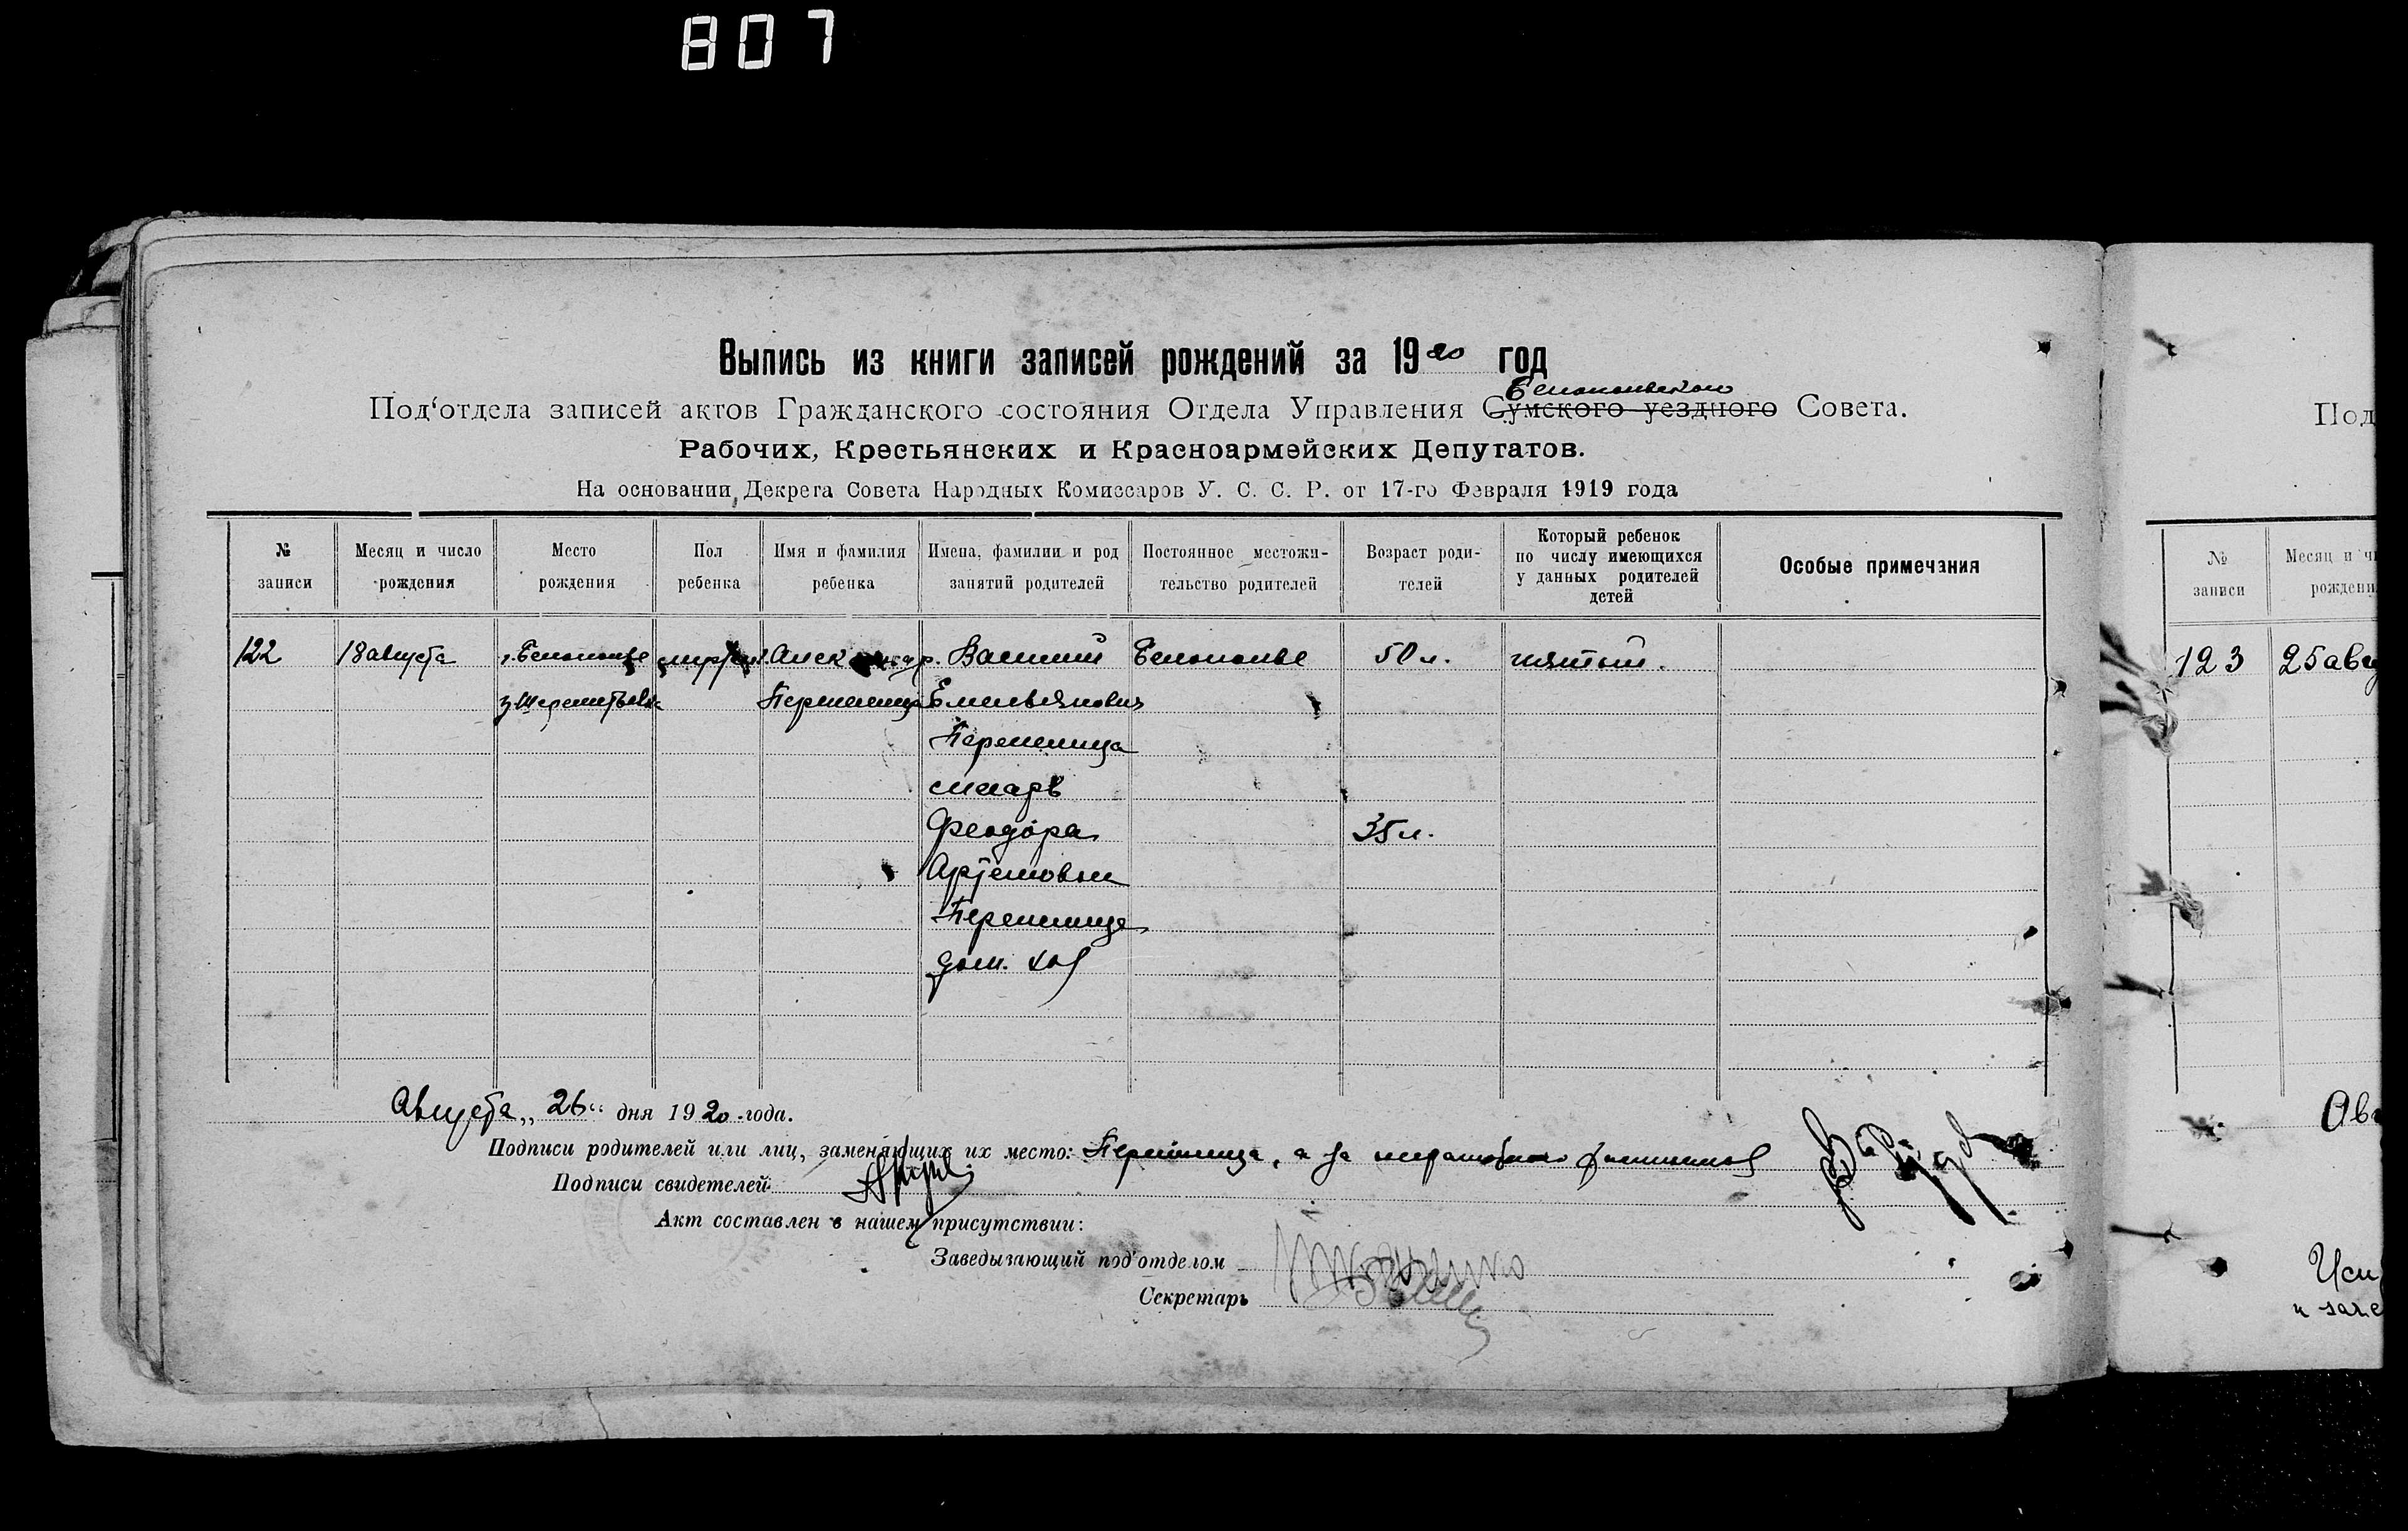 807
Выпись из книги записей рождений за 1920 год
Белопольского
Под'отдела записей актов Гражданского состояния Отдела Управления Сумского уездного Совета.
Рабочих, Крестьянских и Красноармейских Депутатов.
На основании Декрета Совета Народных Комиссаров У. С. С. Р. от 17-го Февраля 1919 года
№ записи
Месяц и число рождения
Место рождения
Пол ребенка
Имя и фамилия ребенка
Имена, фамилии и род занятий родителей
Постоянное местожительство родителей
Возраст родителей
Который ребенок по числу имеющихся у данных родителей детей
Особые примечания
122 18 августа г. Белополье Василий Белополье 50 л. пятый.
Емельянович
Перепелица
Феодора 35 л.
Перепелица
дом. хоз
Августа „26“ дня 1920 года.
Подписи родителей или лиц, заменяющих их место: а за
Подписи свидетелей
Акт составлен в нашем присутствии:
Заведывающий под'отделом
Секретарь
Под
№ записи
Месяц и чи
рождени
123 25 авгу
Ав